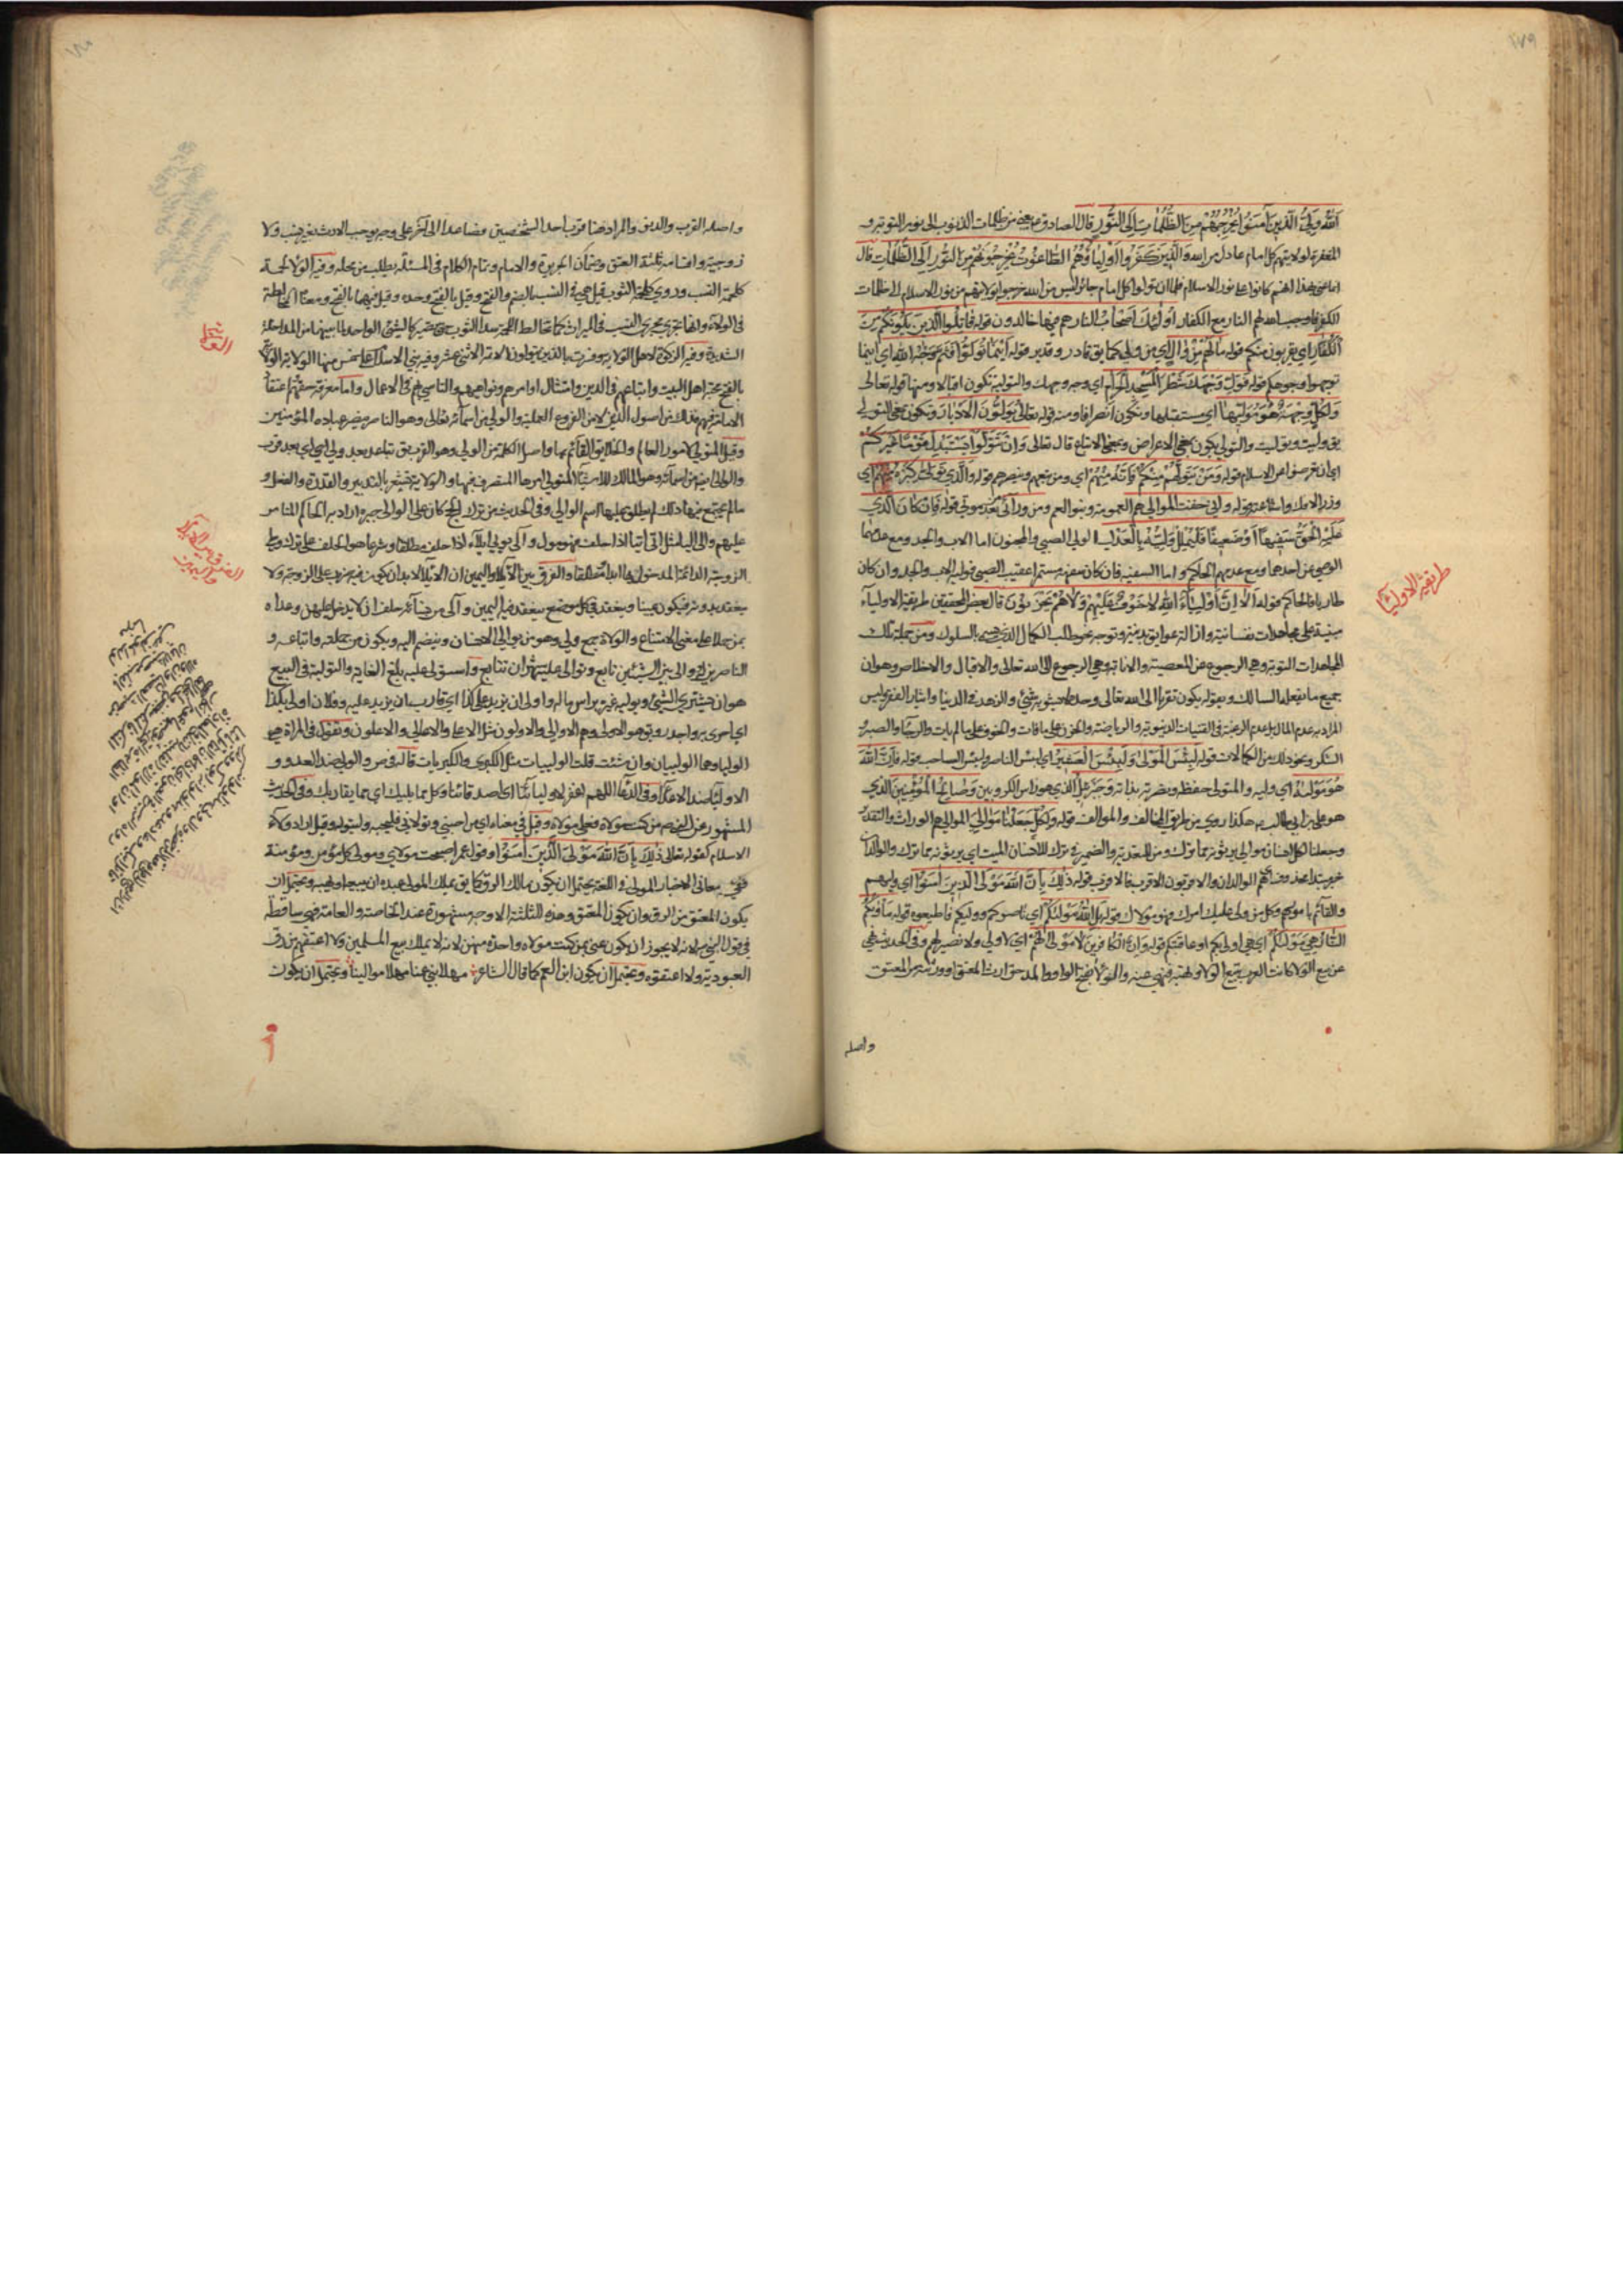 ١٧٩
اَللّٰهُ وَلِيُّ الَّذِينَ آمَنُوا يُخْرِجُهُمْ مِنَ الظُّلُمَاتِ إِلَى النُّورِ قال الصادق ع يعني من ظلمات الذنوب الى نور التوبة و
المغفرة لولايتهم كل امام عادل من الله وَالَّذِينَ كَفَرُوا أَوْلِيَاؤُهُمُ الطَّاغُوتُ يُخْرِجُونَهُمْ مِنَ النُّورِ إِلَى الظُّلُمَاتِ قال
انما عنى بهذا انهم كانوا على نور الاسلام فلما ان تولوا كل امام جائر ليس من الله خرجوا بولايتهم من نور الاسلام الى ظلمات
الكفر فاوجب الله لهم النار مع الكفار أُولٰئِكَ أَصْحَابُ النار هم فيها خالدون قوله قَاتِلُوا الَّذِينَ يَلُونَكُمْ مِنَ
الْكُفَّارِ اي يقربون منكم قوله مَا لَهُمْ مِنْ وَالٍ اي من ولي كما يق قادر وقدير قوله أَيْنَمَا تُوَلُّوا فَثَمَّ وَجْهُ اللهِ اي اينما
توجهوا وجوهكم قوله فَوَلِّ وَجْهَكَ شَطْرَ الْمَسْجِدِ الْحَرَامِ اي وجه وجهك والتولية تكون اقبالا ومنها قوله تعالى
وَلِكُلٍّ وِجْهَةٌ هُوَ مُوَلِّيهَا اي مستقبلها وتكون انصرافا ومنه قوله تعالى يُوَلُّونَ الْأَدْبَارَ وتكون بمعنى التولي
يق وليت وتوليت والتولي يكون بمعنى الاعراض وبمعنى الاتباع قال تعالى وَإِنْ تَتَوَلَّوْا يَسْتَبْدِلْ قَوْمًا غَيْرَكُمْ
اي ان تعرضوا عن الاسلام قوله وَمَنْ يَتَوَلَّهُمْ مِنْكُمْ فَإِنَّهُ مِنْهُمْ اي ومن يتبعهم وينصرهم قوله وَالَّذِي تَوَلَّى كِبْرَهُ مِنْهُمْ اي
وزر الافك واشاعته قوله وَإِنِّي خِفْتُ الْمَوَالِيَ هم العمومة وبنو العم ومن ورائي بعد موتي قوله فَإِنْ كَانَ الَّذِي
عَلَيْهِ الْحَقُّ سَفِيهًا أَوْ ضَعِيفًا فَلْيُمْلِلْ وَلِيُّهُ بِالْعَدْلِ لولي الصبي والمجنون اما الاب والجد ومع عدمهما
الوصي عن احدهما ومع عدمهم الحاكم واما السفيه فان كان سفهه مستمرا عقيب الصبى فوليه الاب والجد وان كان
طاريا فالحاكم قوله أَلَا إِنَّ أَوْلِيَاءَ اللهِ لَا خَوْفٌ عَلَيْهِمْ وَلَا هُمْ يَحْزَنُونَ قال بعض المحققين طريقة الاولياء
مبنية على مجاهدات نفسانية وازالة عوايق بدنية وتوجه نحو طلب الكمال الذي يسمى بالسلوك ومن جملة تلك
المجاهدات التوبة وهي الرجوع عن المعصية والانابة وهي الرجوع الى الله تعالى والاقبال والاخلاص وهو ان
جميع ما يفعله السالك ويقوله يكون تقربا الى الله تعالى وحده لا يشوبه شيء والزهد في الدنيا وايثار الفقر وليس
المراد به عدم المال بل عدم الرغبة في القنيات الدنيوية والرياضة والحزن على ما فات والخوف على ما لم يات والرجاء والصبر و
الشكر ونحو ذلك من الكمالات قوله لَبِئْسَ الْمَوْلَى وَلَبِئْسَ الْعَشِيرُ اي لبئس الناصر ولبئس الصاحب قوله فَإِنَّ اللهَ
هُوَ مَوْلَاهُ اي وليه والمتولي حفظه ونصرته بذاته وَجِبْرِيلُ الذي هو راس الكروبيين وَصَالِحُ الْمُؤْمِنِينَ الذي
هو علي بن ابي طالب ع هكذا روي من طريق المخالف والموالف قوله وَلِكُلٍّ جَعَلْنَا مَوَالِيَ الموالي هم الوراث والتقدير
وجعلنا لكل انسان موالي يرثونه مما ترك ومن للتعدية والضمير في ترك للانسان الميت اي يرثونه مما ترك والوالدان
خبر مبتدا محذوف اي هم الوالدان والاقربون الاقرب فالاقرب قوله ذٰلِكَ بِأَنَّ اللهَ مَوْلَى الَّذِينَ آمَنُوا اي وليهم
والقائم بامورهم وكل من ولي عليك امرك فهو مولاك قوله بَلِ اللهُ مَوْلَاكُمْ اي ناصركم ووليكم فاطيعوه قوله مَأْوَاكُمُ
النَّارُ هِيَ مَوْلَاكُمْ اي هي اولى بكم او عاقبتكم قوله وَأَنَّ الْكَافِرِينَ لَا مَوْلَى لَهُمْ اي لا ولي ولا نصير لهم وفي الحديث نهي
عن بيع الولاء كانت العرب تبيع الولاء وتهبه فنهي عنه والولاء بفتح الواو والمد حق ارث المعتق او ورثته من المعتق
واصله
طريقة الاولياء
واصله القرب والدنو والمراد هنا قرب احد الشخصين فصاعدا الى آخر على وجه يوجب الارث بغير نسب ولا
زوجية واقسامه ثلثة العتق وضمان الجريرة والامام وتمام الكلام في المسئلة يطلب من محله وفيه الولاء لحمة
كلحمة النسب وروي كلحمة الثوب قيل هي في النسب بالضم والفتح وقيل بالفتح وحده وقيل فيهما بالفتح ومعناه المخالطة
في الولاء وانها تجري مجرى النسب في الميراث كما تخالط اللحمة سدا الثوب حتى تصير كالشيء الواحد لما بينهما من المداخلة
الشديدة وفيه الزكوة لاهل الولاية وفسرت بالذين يتولون الائمة الاثني عشر وفيه بني الاسلام على خمس منها الولاية الولاء
بالفتح محبة اهل البيت واتباعهم في الدين وامتثال اوامرهم ونواهيهم والتاسي بهم في الاعمال واما معرفة حقهم واعتقاد
الامامة فيهم فذلك من اصول الدين لا من الفروع العملية والولي من اسمائه تعالى وهو الناصر ينصر عباده المؤمنين
وقيل المتولي لامور العالم والخلايق القائم بها واصل الكلمة من الولي وهو القرب يق تباعد بعد ولي اي بعد قرب
والوالي ايضا من اسمائه وهو المالك للاشياء المتولي امرها المتصرف فيها والولاية تشعر بالتدبير والقدرة والفعل و
ما لم يجتمع فيها ذلك لم يطلق عليها اسم الوالي وفي الحديث من ترك الحج كان على الوالي جبره اراد به الحاكم المتامر
عليهم والى ايلاء مثل اتى ايتاء اذا حلف فهو مول وآلى يولي ايلاء اذا حلف مطلقا وشرعا هو الحلف على ترك وطي
الزوجة الدائمة المدخول بها ابدا او مطلقا والفرق بين الايلاء واليمين ان الايلاء لا بد ان يكون فيه ضرب على الزوجة ولا
ينعقد بدونه فيكون يمينا وينعقد في كل موضع ينعقد فيه اليمين وآلى من نسائه حلف ان لا يدخل عليهن وعداه
بمن حملا على معنى الامتناع والولاة جمع ولي وهو من يوالي الانسان وينضم اليه ويكون من جملته واتباعه و
الناصرين له ووالى بين الشيئين تابع وتوالى عليه شهران تتابع واستولى عليه بلغ الغاية والتولية في البيع
هو ان يشتري الشيء ويوليه غيره براس ماله واولى ان يزيد على كذا اي قارب ان يزيد عليه وفلان اولى بكذا
اي احرى به واجدر وق هو الاولى وهم الاوالي والاولون مثل الاعلى والاعالي والاعلون وتقول في المراة هي
الوليا وهما الوليان وان شئت قلت الوليات مثل الكبرى والكبريات قاله في ص والولي ضد العدو و
الاولياء ضد الاعداء وفي الدعاء اللهم اغفر لاوليائنا اي اصدقائنا وكل مما يليك اي مما يقاربك وفي الحديث
المشهور عن النبي ص من كنت مولاه فعلي مولاه وقيل في معناه اي من احبني وتولاني فليحبه وليتوله وقيل اراد ولاء
الاسلام كقوله تعالى ذٰلِكَ بِأَنَّ اللهَ مَوْلَى الَّذِينَ آمَنُوا وقول عمر اصبحت مولاي ومولى كل مؤمن ومؤمنة
معاني الاخبار المولى في اللغة يحتمل ان يكون مالك الرق كما يق يملك المولى عبده ان يبيعه او يهبه ويحتمل ان
يكون المعتق من الرق وان يكون المعتق وهذه الثلثة الاوجه مشهورة عند الخاصة والعامة فهي ساقطة
في قول النبي ص لانه لا يجوز ان يكون عنى بمن كنت مولاه واحدة منهن لانه لا يملك بيع المسلمين ولا اعتقهم من رق
العبودية ولا اعتقوه ويحتمل ان يكون ابن العم كما قال الشاعر مهلا بني عمنا مهلا موالينا ويحتمل ان يكون
الفرق بين الايلاء واليمين